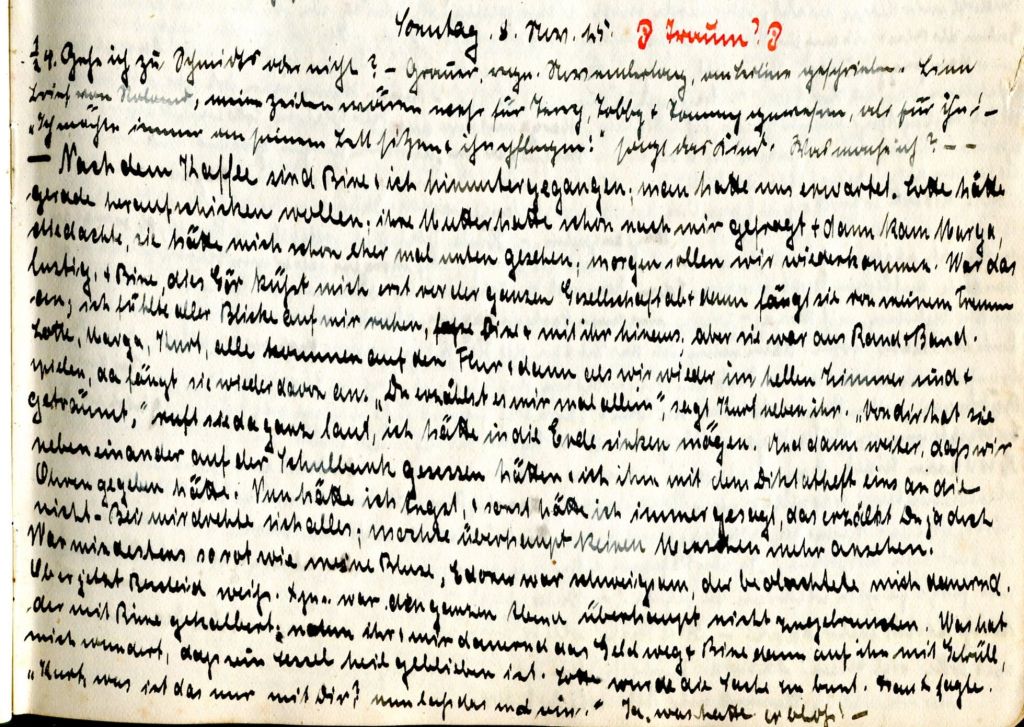 Sonntag. 8. Nov. 25. Traum?
½4. Gehe ich zu Schmidts oder nicht? – Grauer, Novembertag, geschrieben. Einen
Brief von Roland, meine Zeilen wären mehr für Jerry, Tobby + Tommy gewesen, als für ihn! –
„Ich möchte immer an seinem Bett sitzen + ihn pflegen!“ sagt das Kind. Was mach ich? – –
– Nach dem Kaffee sind Bine + ich hinuntergegangen; man hatte uns erwartet. Lotte hätte
gerade heraufschicken wollen; ihre Mutter hatte schon nach mir gefragt + dann kam Marga,
die dachte, sie hätte mich schon eher mal unten gesehen; morgen sollen wir wiederkommen. War das
lustig, + Bine, dies Gör küßt mich erst vor der ganzen Gesellschaft ab + dann fängt sie von meinem Traum
an; ich fühlte aller Blicke auf mir ruhen, Bine + mit ihr hinaus; aber sie war aus Rand + Band.
Lotte, Marga, Kurt, alle kommen auf den Flur + dann als wir wieder im hellen Zimmer sind +
spielen, da fängt sie wieder davon an. „Du erzählst es mir mal allein“, sagt Kurt neben ihr. „Von dir hat sie
geträumt,“ ruft sie da ganz laut, ich hätte in die Erde sinken mögen. Und dann weiter, daß wir
nebeneinander auf der Schulbank gesessen hätten + ich ihm mit dem Diktatheft eins an die
Ohren gegeben hätte. Nun hätte ich Angst, + sonst hätte ich immer gesagt, das erzählst Du ja doch
nicht – Bei mir drehte sich alles; mochte überhaupt keinen Menschen mehr ansehen.
War mindestens so rot wie meine Bluse, war schweigsam, der beobachtete mich dauernd.
Ob er jetzt Bescheid weiß. war den ganzen Abend überhaupt nicht Was hat
der mit Bine gekalbert; nahm ihr + mir dauernd das Geld weg + Bine dann auf ihn mit Gebrüll,
mich wundert, daß ein Sessel heil geblieben ist. Lotte wurde die Sache zu bunt. sagte.
„Kurt, was ist das nur mit Dir? nun laß das mal sein.“ Ja, was hatte er bloß! –